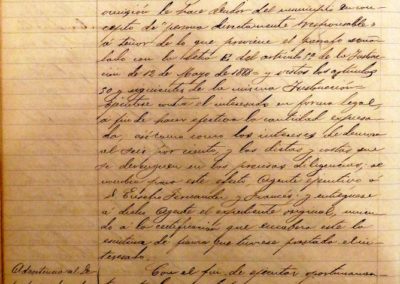 omisión le hace deudor del municipio en con-
cepto de "persona directamente responsable"
á tenor de lo que previene el párrafo seña-
lado con la letra B. del artículo 12 de la Instruc-
ción de 12 de Mayo de 1888 y vistos los artículos
30 y siguientes de la misma Instrucción
contra el interesado en forma legal,
a fin de hacer efectiva la cantidad expresa-
da, así como los intereses de demora
al seis por ciento, y las dietas y costas que
se devenguen en las precisas diligencias, se
nombra para este efecto Agente ejecutivo á
D. Eusebio Fernandez y Francés, y entréguese
á dicho Agente el expediente original, unien-
do á la certificación que encabeza este la
escritura de fianza que tuviese prestada el in-
teresado.
Con el fin de ejecutar oportunamen-